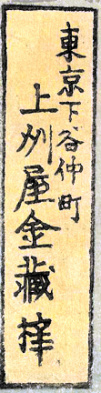 東京下谷仲町
上州屋金藏梓